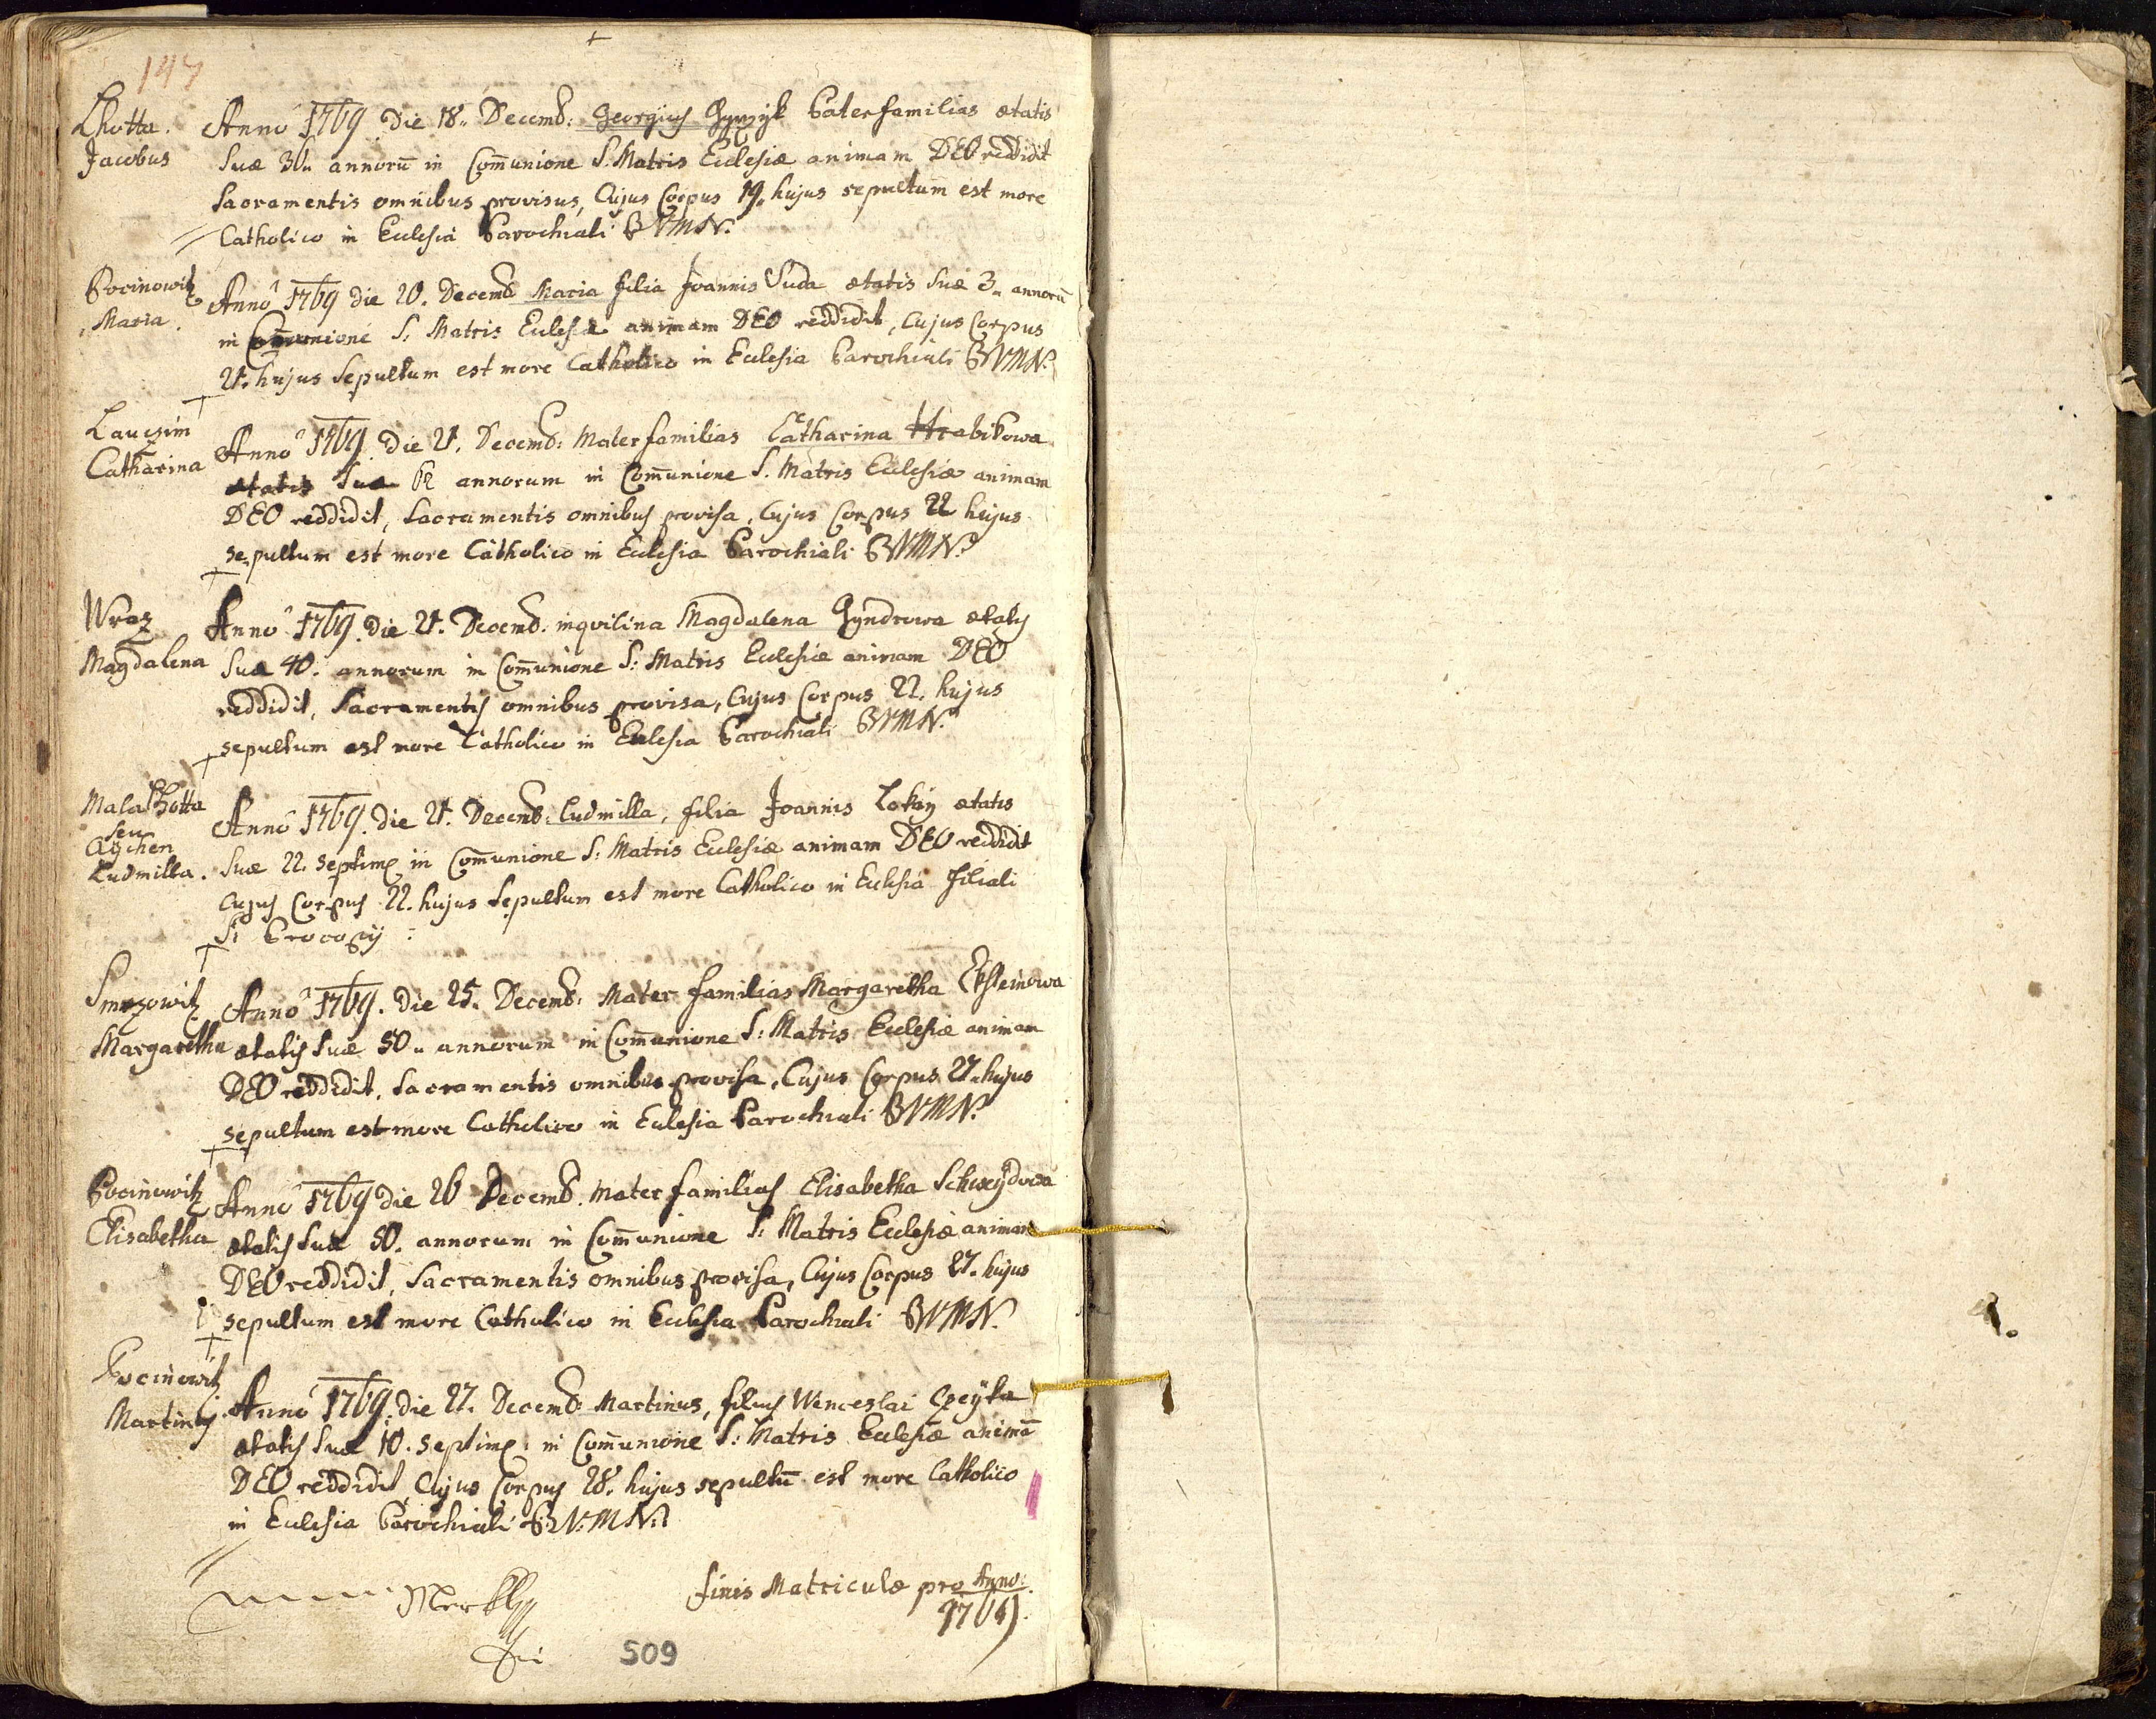 147
Lhotta.
Jacobus
Anno 1769 Die 18. Decemb: Georgius Paterfamilias ætatis
suæ 30. annorū in Com̄unione S. Matris Ecclesiæ animam DEO reddidit
Sacramentis omnibus provisus, Cujus Corpus 19. hujus sepultum est more
Catholico in Ecclesia Parochiali BVMN.
Pocinowitz
Maria.
Anno 1769 die 20. Decemb Maria filia Joannis Duda ætatis suæ 3. annorū
in Com̄unione S. Matris Ecclesiæ animam DEO reddidit, Cujus Corpus
21. hujus Sepultum est more Catholico in Ecclesia Parochiali BVMN.
Lauczim
Catharina
Anno 1769. Die 21. Decemb: Mater familias Catharina Hrabikowa
ætatis Suæ 62 annorum in Com̄unione S. Matris Ecclesiæ animam
DEO reddidit, Sacramentis omnibus provisa, Cujus Corpus 22 hujus
sepultum est more Catholico in Ecclesia Parochiali BVMN.
Wraz
Magdalena
Anno 1769. Die 21. Decemb: inqvilina Magdalena Gyndrowa ætatis
Suæ 40. annorum in Com̄unione S: Matris Ecclesiæ animam DEO
reddidit, Sacramentis omnibus provisa, Cujus Corpus 22. hujus
sepultum est more Catholico in Ecclesia Parochiali BVMN.
Mala Lhotta
seu
Aychen
Ludmilla.
Anno 1769. Die 21. Decemb: Ludmilla, filia Joannis Tokay ætatis
Suæ 22. septim in Com̄unione S: Matris Ecclesiæ animam DEO reddidit
Cujus Corpus 22. hujus sepultum est more Catholico in Ecclesia filiali
S: Procopij
Smrzowitz
Margaretha
Anno 1769. Die 25. Decemb: Mater familias Margaretha Eksteinowa
ætatis Suæ 50. annorum in Com̄unione S: Matris Ecclesiæ animam
DEO reddidit, Sacramentis omnibus provisa, Cujus Corpus 27. hujus
sepultum est more Catholico in Ecclesia Parochiali BVMN.
Pocinowitz
Elisabetha
Anno 1769 Die 26 Decemb. Mater familias Elisabetha
ætatis Suæ 50. annorum in Com̄unione S: Matris Ecclesiæ animam
DEO reddidit, Sacramentis omnibus provisa, Cujus Corpus 27. hujus
sepultum est more Catholico in Ecclesia Parochiali BVMN.
Pocinowitz
Martinus.
Anno 1769. Die 27. Decemb: Martinus, filius Wenceslai Czeyka
ætatis Suæ 10. septim: in Com̄unione S: Matris Ecclesiæ animā
DEO reddidit, Cujus Corpus 28. hujus sepultū est more Catholico
in Ecclesia Parochiali B:V:M:N:
finis Matriculæ pro Anno:
1769.
509